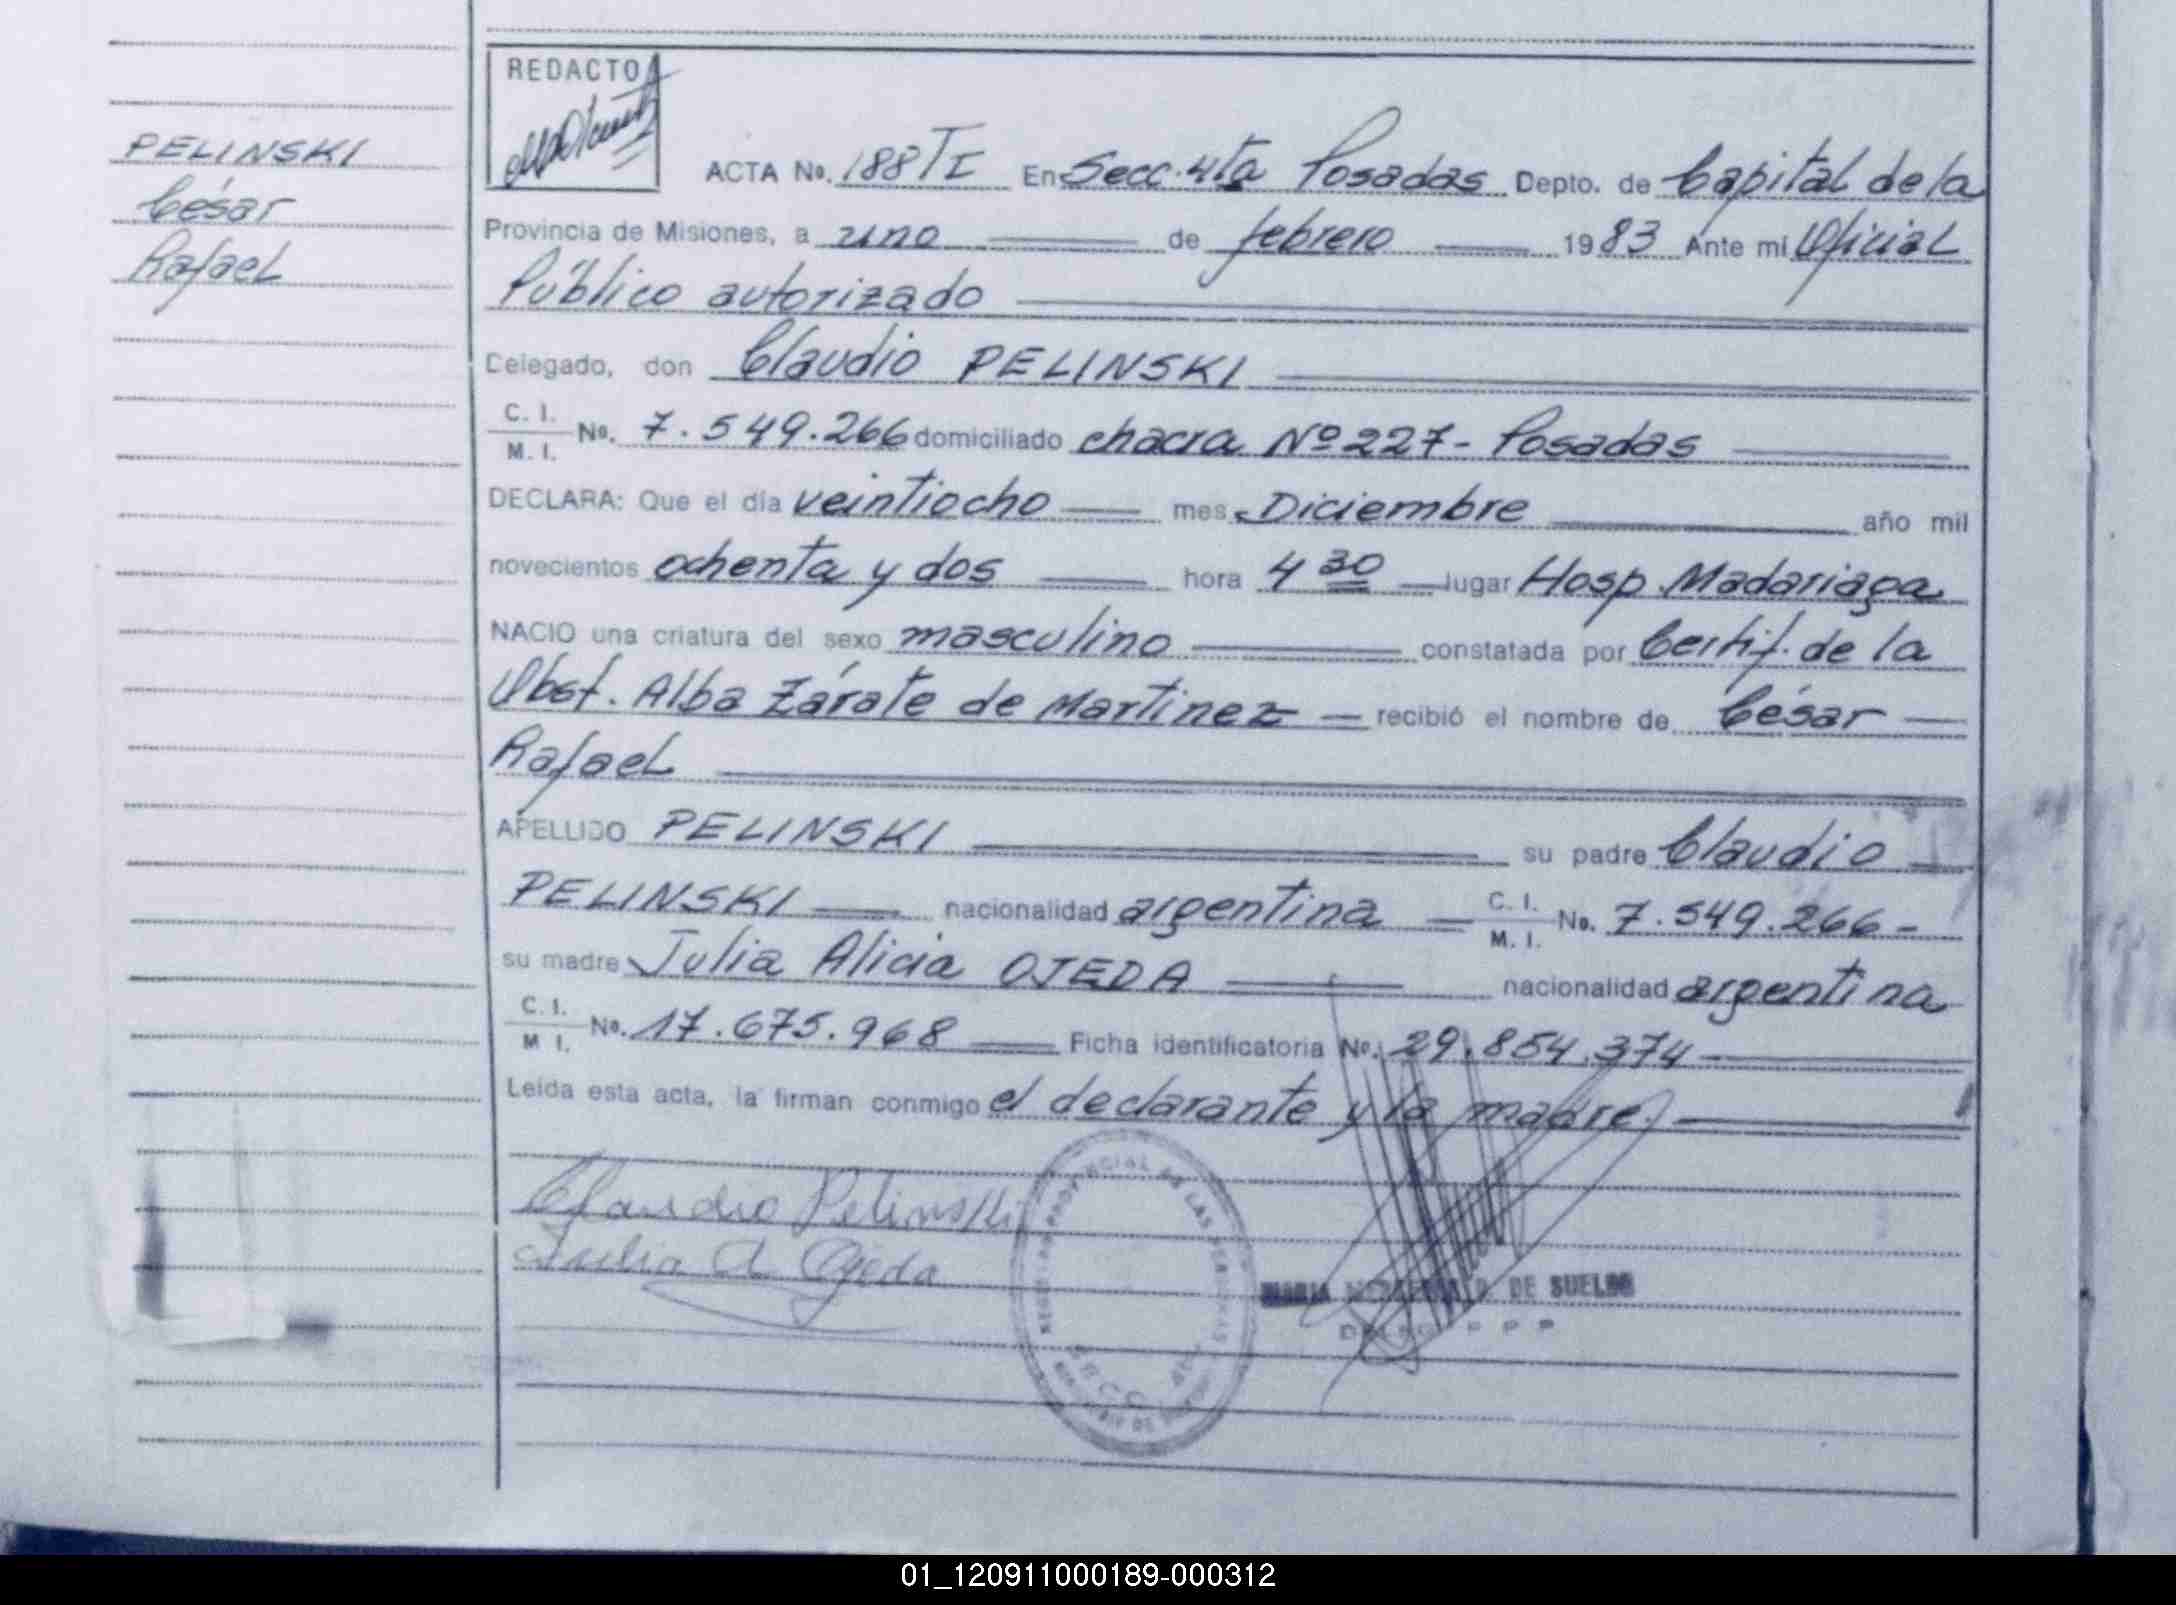 PELINSKI
César
Rafael
REDACTO
ACTA No. 188 TI En Secc. 4ta Posadas Depto. de Capital de la
Provincia de Misiones, a uno de febrero 1983 Ante mi Oficial
Público autorizado
Delegado, don Claudio PELINSKI
C. I.
M. I. No. 7.549.266 domiciliado chacra Nº 227 - Posadas
DECLARA: Que el día veintiocho mes Diciembre año mil
novecientos ochenta y dos hora 4 30 lugar Hosp. Madariaga
NACIO una criatura del sexo masculino constatada por Certif. de la
Obst. Alba Zárate de Martinez recibió el nombre de César
Rafael
APELLIDO PELINSKI su padre Claudio
PELINSKI nacionalidad argentina C. I.
M. I. No. 7.549.266-
su madre Julia Alicia OJEDA nacionalidad argentina
C. I.
M I. No. 17.675.968 Ficha identificatoria No. 29.854.374
Leída esta acta, la firman conmigo el declarante y la madre.
Claudio Pelinski
Julia A Ojeda
PROVINCIAL DE LAS PERSONAS
SECC. 4ta
MARIA DE SUELDO
01_120911000189-000312